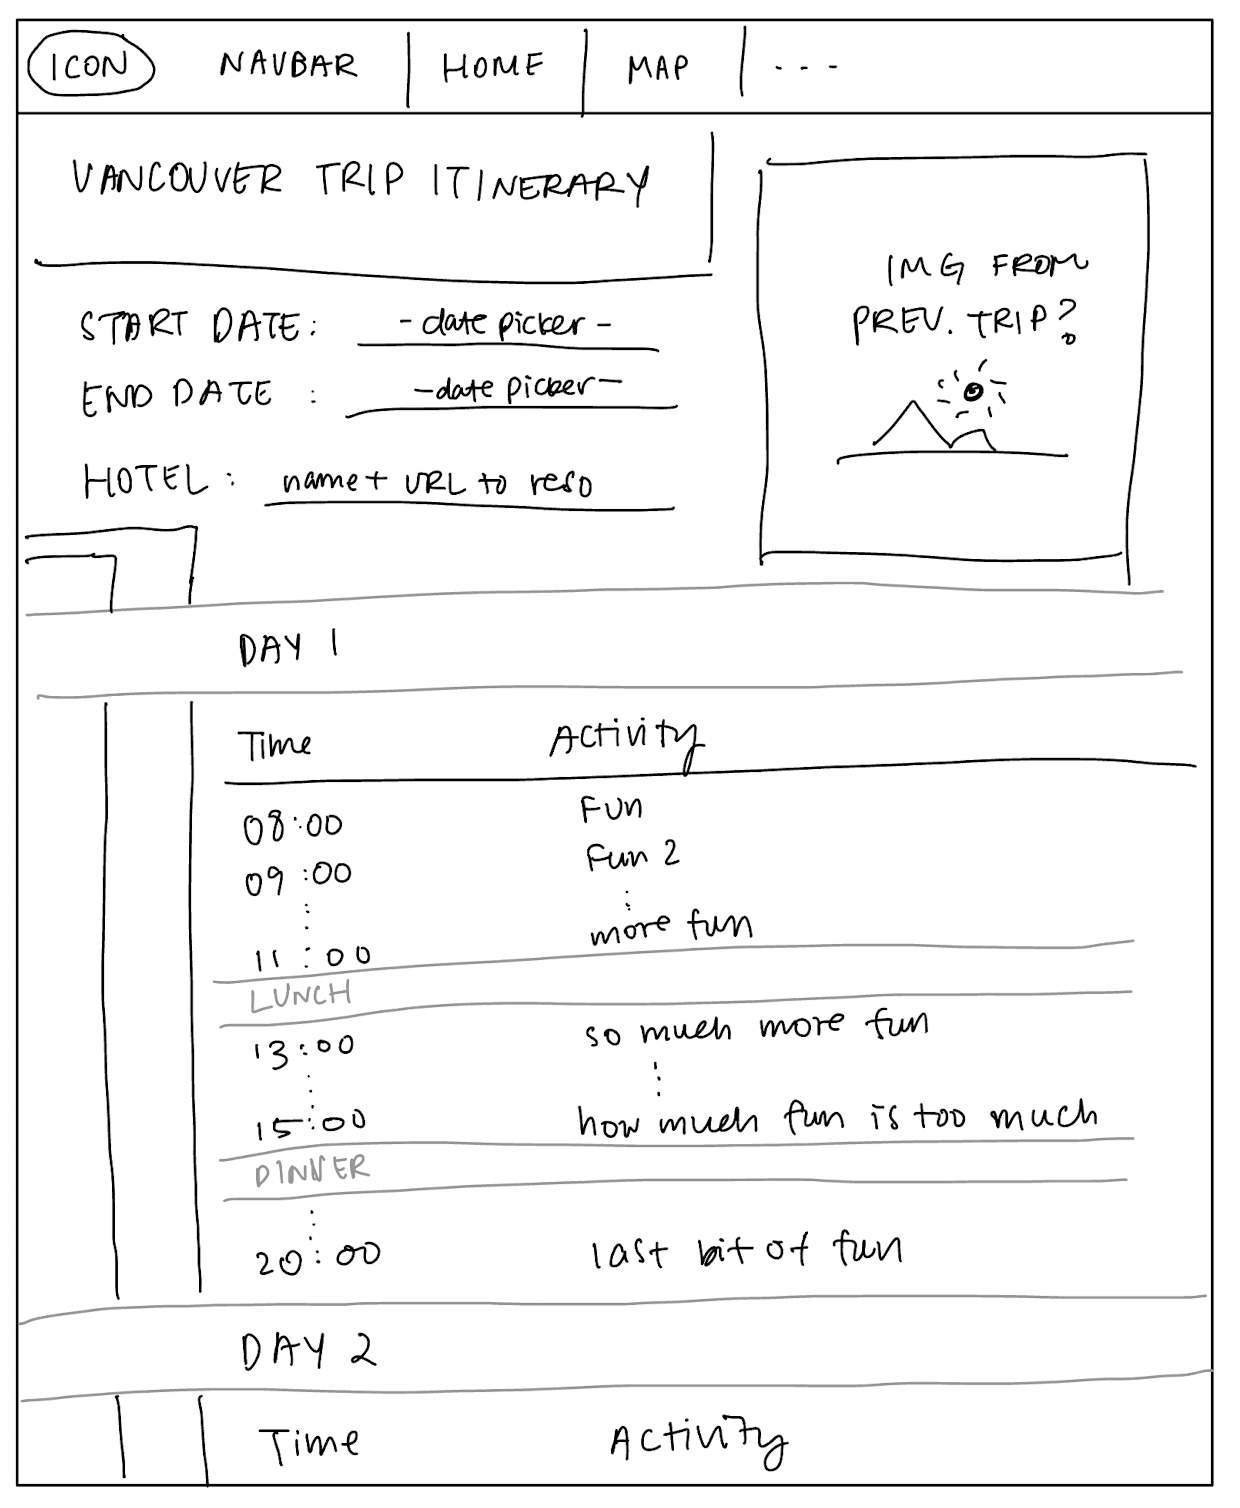 ICON NAVBAR HOME MAP ...
VANCOUVER TRIP ITINERARY
IMG FROM
PREV. TRIP?
START DATE: - date picker -
END DATE : - date picker -
HOTEL: name + URL to reso
DAY 1
Time Activity
08:00 Fun
09:00 Fun 2
11:00 more fun
LUNCH
13:00 so much more fun
15:00 how much fun is too much
DINNER
20:00 last bit of fun
DAY 2
Time Activity